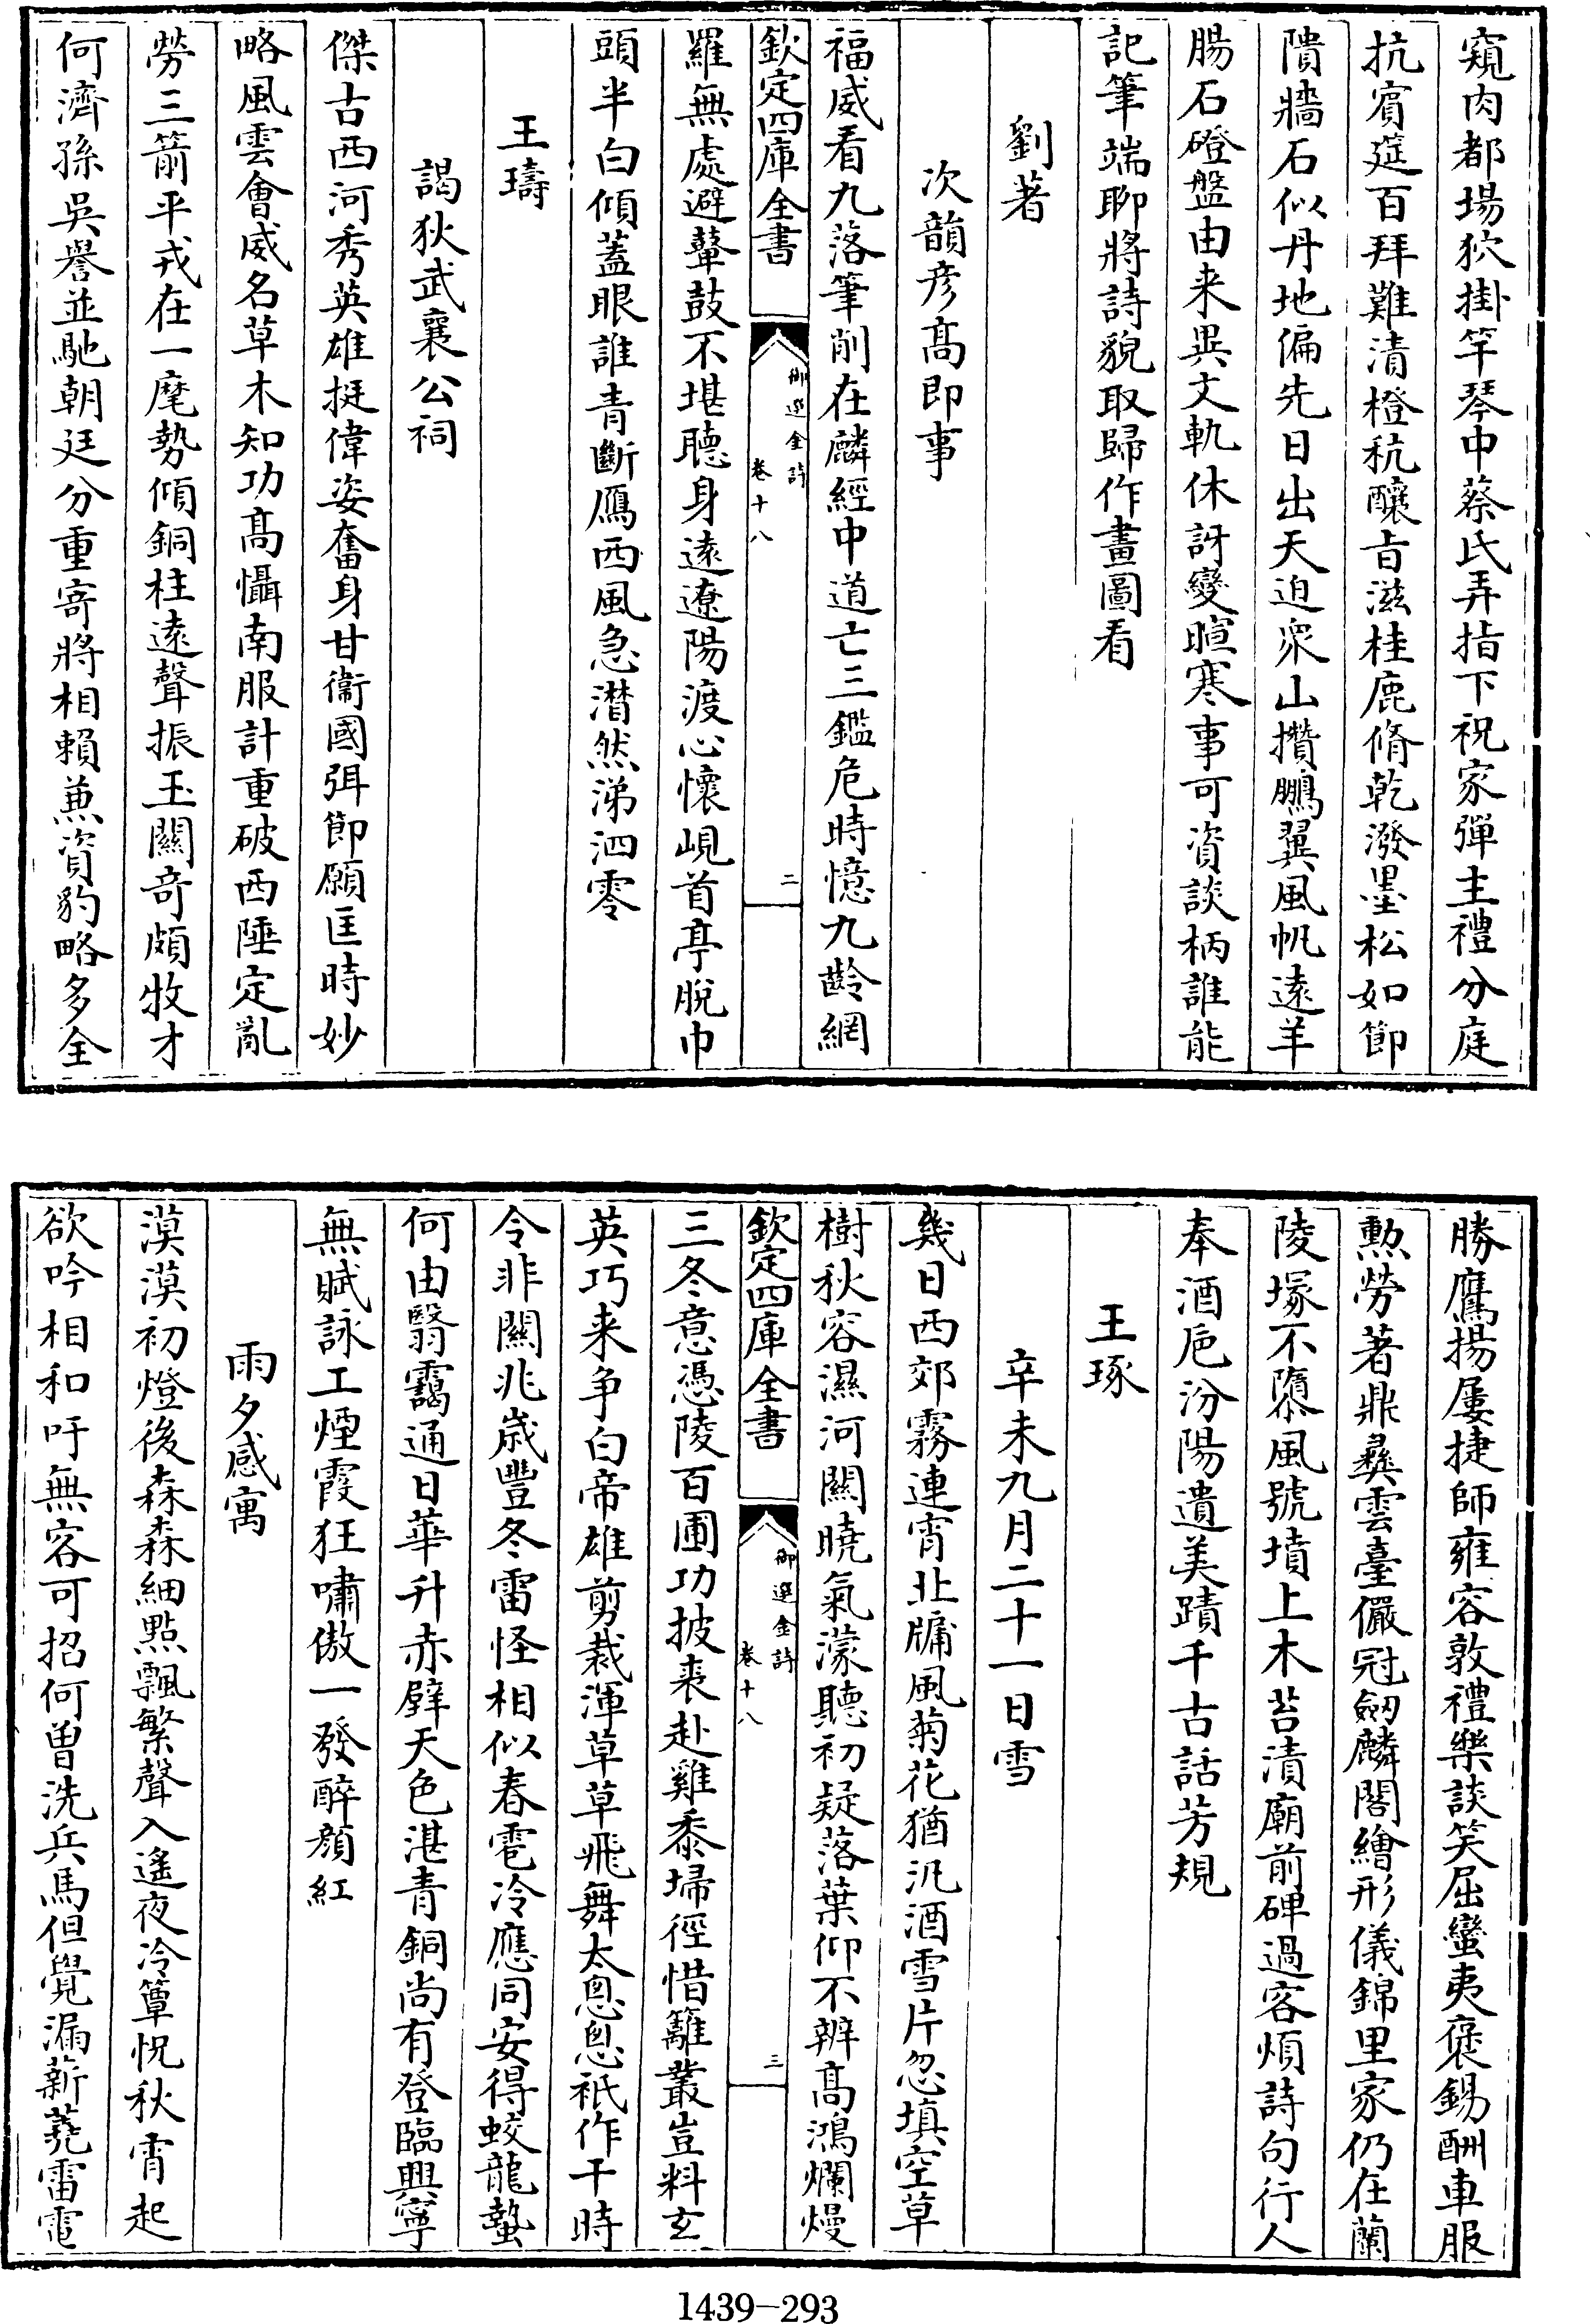 窺肉都場狄掛竿琴中蔡氏弄指下祝家彈主禮分庭
抗賓筵百拜難清橙秔釀旨滋桂鹿脩乾潑墨松如節
隤牆石似丹地偏先日出天迫衆山攢鵬翼風帆遠羊
腸石磴盤由来異文軌休訝變暄寒事可資談柄誰能
記筆端聊將詩貌取歸作畫圖看
劉著
次韻彦髙即事
福威看九落筆削在麟經中道亡三鑑危時憶九齡網
欽定四庫全書
御選金詩
卷十八
二
羅無處避鼙鼓不堪聴身逺遼陽渡心懷峴首亭脫巾
頭半白傾蓋眼誰青斷鴈西風急潸然涕泗零
王璹
謁狄武襄公祠
傑古西河秀英雄挺偉姿奮身甘衞國弭節願匡時妙
略風雲會威名草木知功髙懾南服計重破西陲定亂
勞三箭平戎在一麾勢傾銅柱逺聲振玉關奇頗牧才
何濟孫吳譽並馳朝廷分重寄將相賴兼資豹略多全
勝鷹揚屢捷師雍容敦禮樂談笑屈蠻夷褒錫酬車服
勲勞著鼎彞雲臺儼冠劒麟閣繪形儀錦里家仍在蘭
陵塚不隳風號墳上木苔漬廟前碑過客煩詩句行人
奉酒巵汾陽遺美蹟千古話芳規
王琢
辛未九月二十一日雪
幾日西郊霧連宵北牖風菊花猶汎酒雪片忽填空草
樹秋容濕河關曉氣濛聽初疑落葉仰不辨髙鴻爛熳
欽定四庫全書
御選金詩
卷十八
三
三冬意憑陵百圃功披裘赴雞黍埽徑惜籬叢豈料玄
英巧来争白帝雄剪裁渾草草飛舞太悤悤秖作干時
令非關兆嵗豐冬雷怪相似春雹冷應同安得蛟龍蟄
何由翳靄通日華升赤壁天色湛青銅尚有登臨興寧
無賦詠工煙霞狂嘯傲一發醉顔紅
雨夕感寓
漠漠初燈後森森細點飄繁聲入遙夜冷簟怳秋宵起
欲吟相和吁無客可招何曽洗兵馬但覺漏薪蕘雷電
1439－293